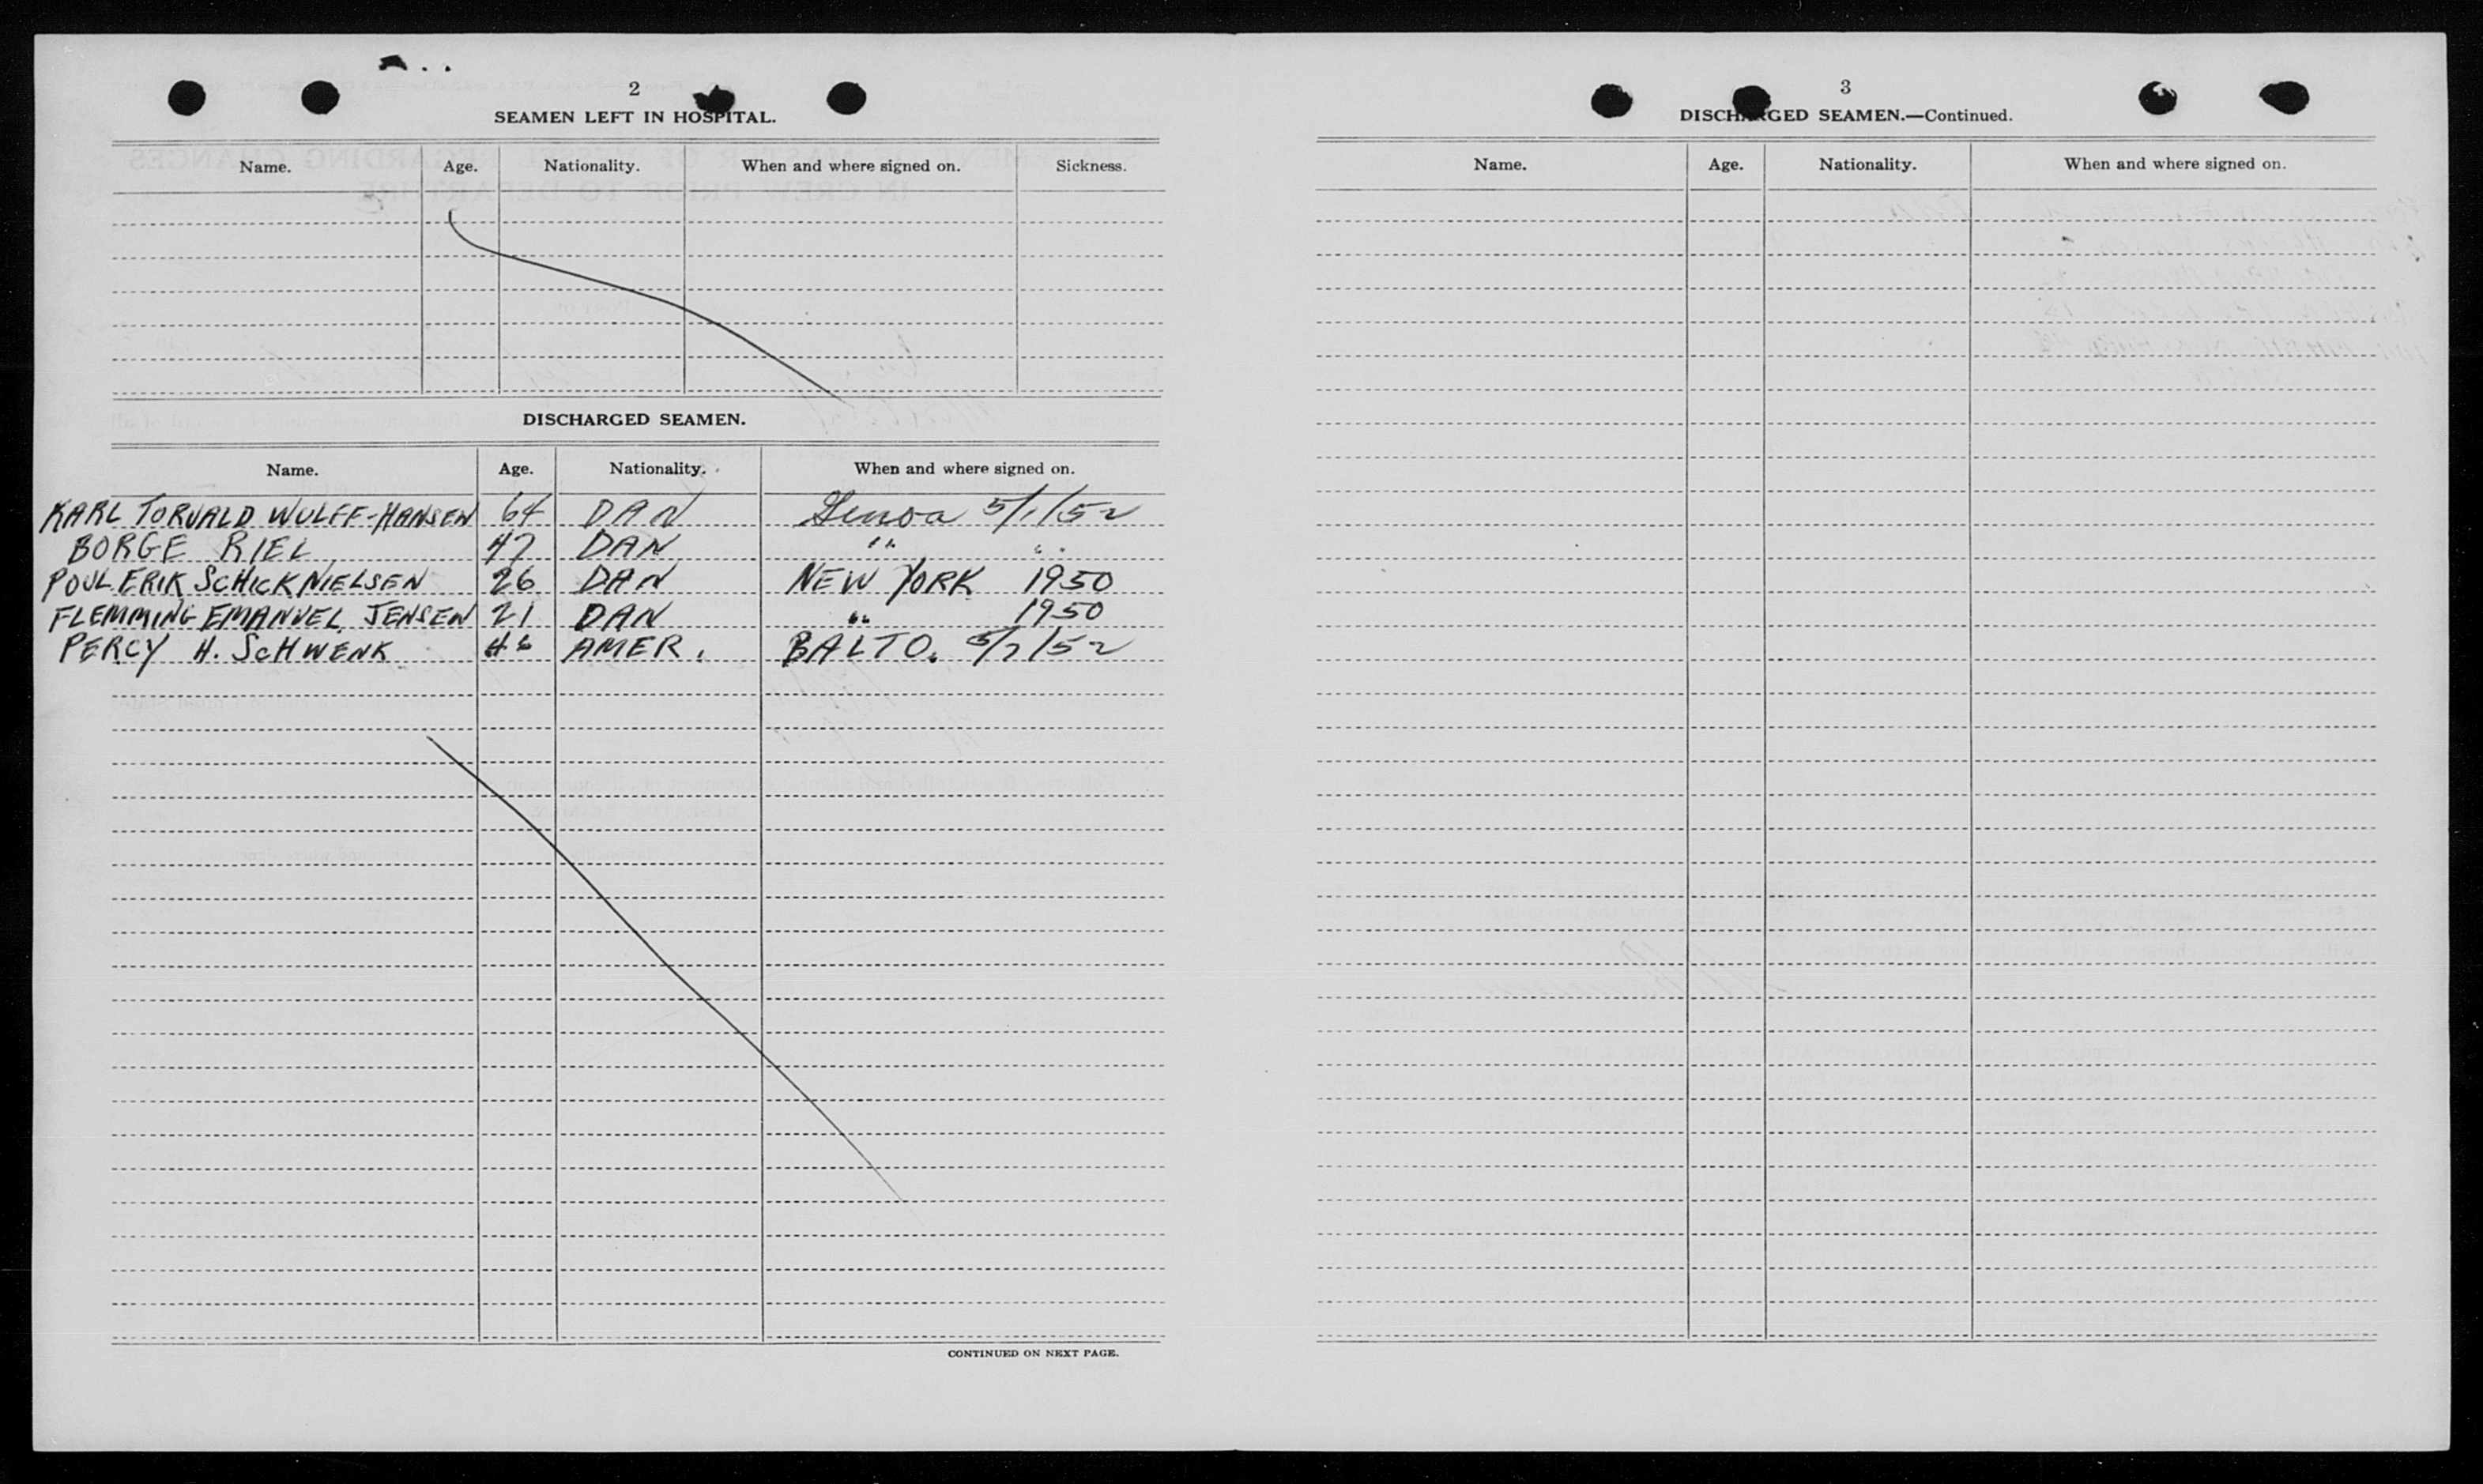 2
SEAMEN LEFT IN HOSPITAL.
Name. Age. Nationality. When and where signed on. Sickness.
DISCHARGED SEAMEN.
Name. Age. Nationality. When and where signed on.
KARL TORVALD WULFF-HANSEN 64 DAN Genoa 5/1/52
BORGE RIEL 47 DAN " "
POUL ERIK SCHICK NIELSEN 26 DAN NEW YORK 1950
FLEMMING EMANUEL JENSEN 21 DAN " 1950
PERCY H. SCHWENK AMER. BALTO. 5/7/52
CONTINUED ON NEXT PAGE.
3
DISCHARGED SEAMEN.—Continued.
Name. Age. Nationality. When and where signed on.